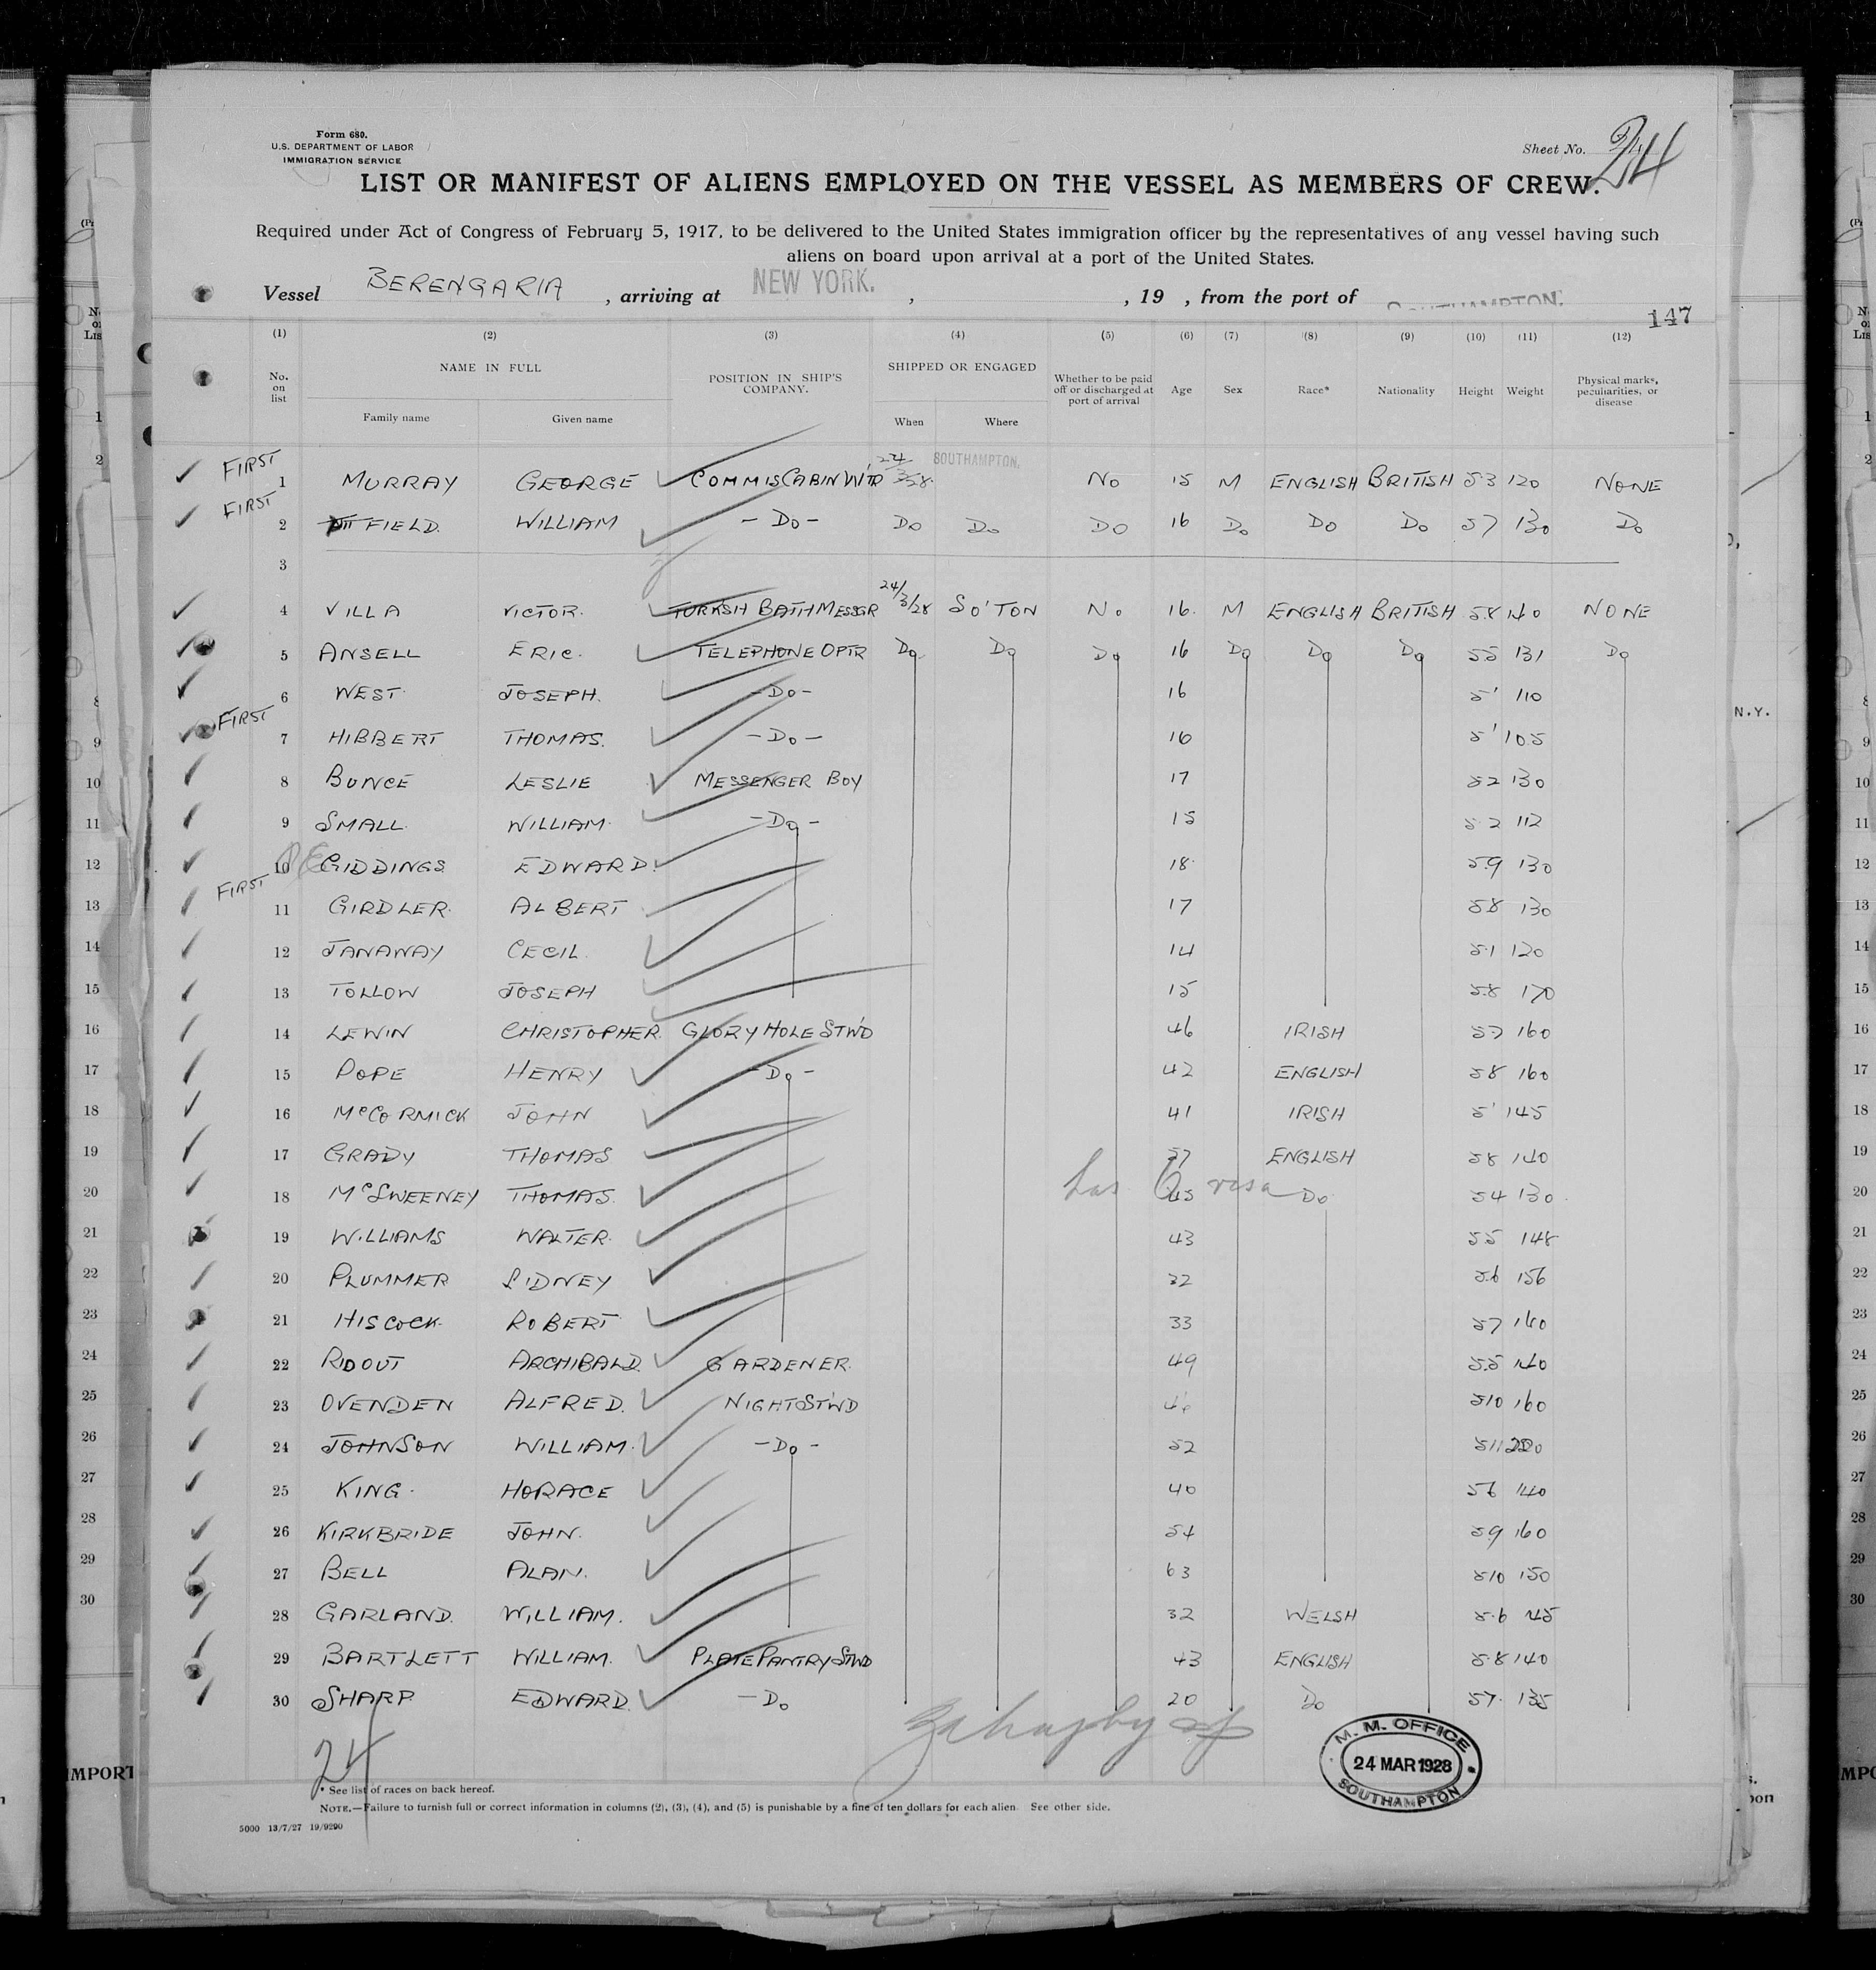 Form 680.
U.S. DEPARTMENT OF LABOR
IMMIGRATION SERVICE
Sheet No. 24
LIST OR MANIFEST OF ALIENS EMPLOYED ON THE VESSEL AS MEMBERS OF CREW.
Required under Act of Congress of February 5, 1917, to be delivered to the United States immigration officer by the representatives of any vessel having such
aliens on board upon arrival at a port of the United States.
Vessel BERENGARIA , arriving at NEW YORK. , , 19 , from the port of SOUTHAMPTON.
147
(1) (2) (3) (4) (5) (6) (7) (8) (9) (10) (11) (12)
No. on list NAME IN FULL POSITION IN SHIP'S COMPANY. SHIPPED OR ENGAGED Whether to be paid off or discharged at port of arrival Age Sex Race* Nationality Height Weight Physical marks, peculiarities, or disease
Family name Given name When Where
FIRST 1 MURRAY GEORGE COMMIS CABIN WTR 24/3/28. SOUTHAMPTON. NO 15 M ENGLISH BRITISH 53 120 NONE
FIRST 2 FIELD. WILLIAM - DO - DO DO DO 16 DO DO DO 57 130 DO
3
4 VILLA VICTOR. TURKSH BATH MESSGR 24/3/28 SO'TON NO 16. M ENGLISH BRITISH 5.8 140 NONE
5 ANSELL ERIC. TELEPHONE OPTR DO DO DO 16 DO DO DO 55 131 DO
6 WEST JOSEPH. - DO - 16 5' 110
FIRST 7 HIBBERT THOMAS. - DO - 16 5' 105
8 BUNCE LESLIE MESSENGER BOY 17 52 130
9 SMALL WILLIAM. - DO - 15 5.2 112
10 GIDDINGS EDWARD. 18. 5.9 130
FIRST 11 GIRDLER. ALBERT 17 58 130
12 JANAWAY CECIL. 14 5.1 120
13 TOLLOW JOSEPH 15 58 170
14 LEWIN CHRISTOPHER. GLORY HOLE STWD 46 IRISH 57 160
15 POPE HENRY - DO - 42 ENGLISH 58 160
16 McCORMICK JOHN 41 IRISH 5' 145
17 GRADY THOMAS 57 ENGLISH 58 140
18 McSWEENEY THOMAS. 45 DO 54 130
has visa
19 WILLIAMS WALTER. 43 55 148
20 PLUMMER SIDNEY 32 5.6 156
21 HISCOCK. ROBERT 33 57 160
22 RIDOUT ARCHIBALD. GARDENER. 49 5.5 140
23 OVENDEN ALFRED. NIGHT STWD 510 160
24 JOHNSON WILLIAM. - DO - 52 511 220
25 KING. HORACE 40 56 140
26 KIRKBRIDE JOHN. 54 59 160
27 BELL ALAN. 63 510 150
28 GARLAND. WILLIAM. 32 WELSH 5.6 145
29 BARTLETT WILLIAM. PLATE PANTRY STWD 43 ENGLISH 5.8 140
30 SHARP EDWARD. - DO 20 DO 57. 135
24
M. M. OFFICE
24 MAR 1928
SOUTHAMPTON
* See list of races on back hereof.
NOTE.—Failure to turnish full or correct information in columns (2), (3), (4), and (5) is punishable by a fine of ten dollars for each alien. See other side.
5000 13/7/27 19/9290